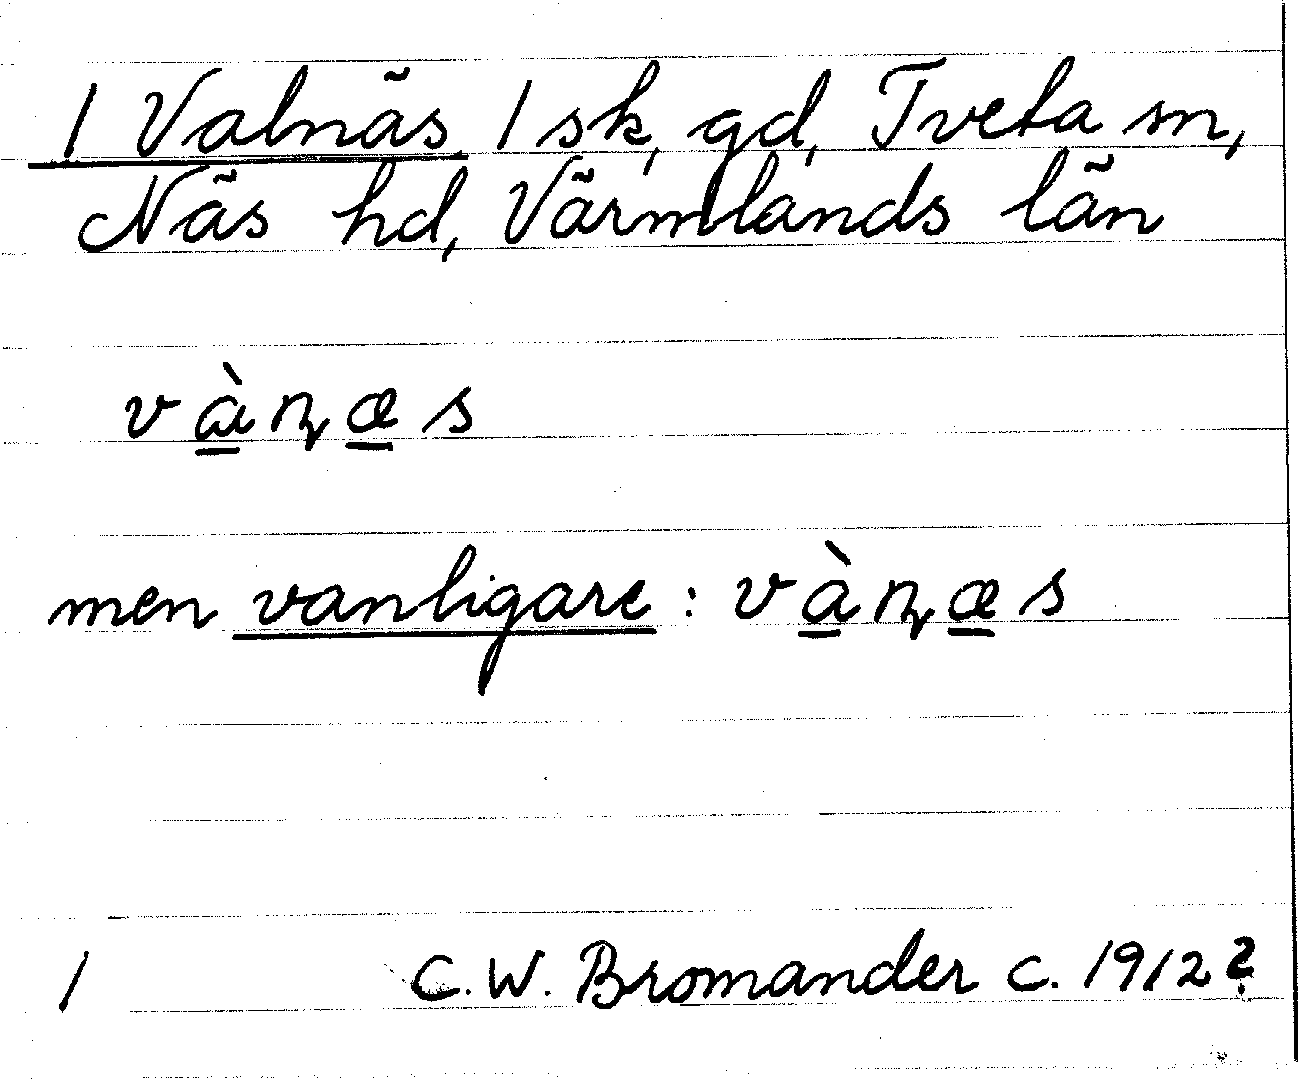 1 Valnäs 1 sk, gd, Tveta sn,
Näs hd, Värmlands län
v à̱ ɳ æ̱ s
men vanligare : v à̱ ɳ æ̱ s
1 C.W. Bromander c. 1912?